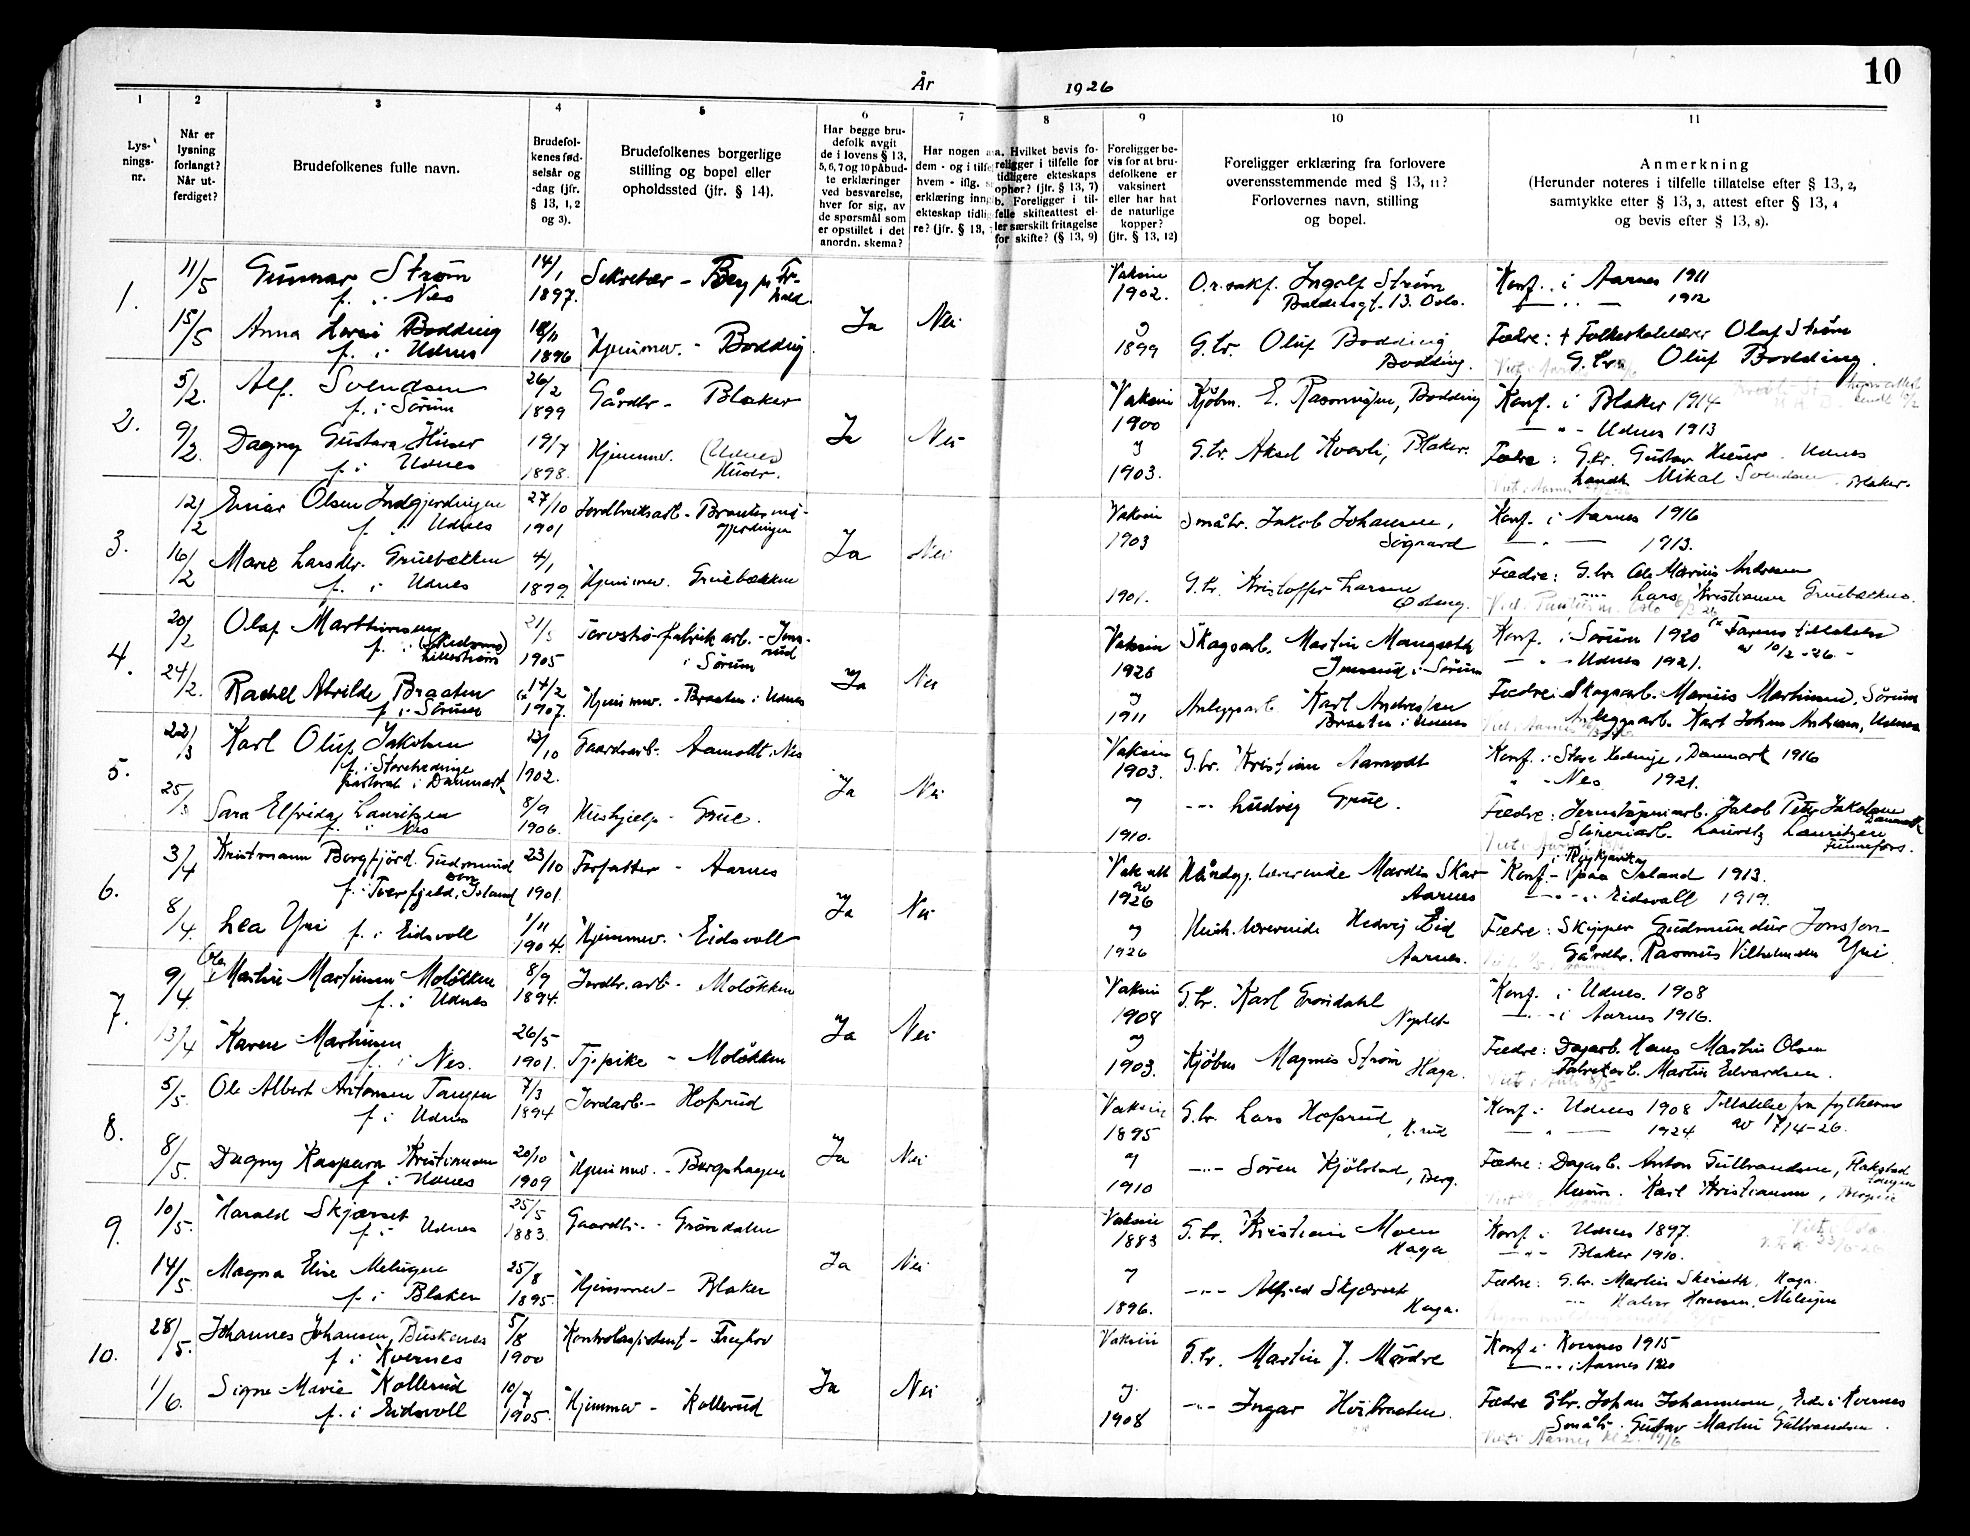 År 1926
10
1 2 3 4 5 6 7 8 9 10 11
Lys-
nings-
nr.
Når er
lysning
forlangt?
Når ut-
ferdiget?
Brudefolkenes fulle navn.
Brudefol-
kenes fød-
selsår og
-dag (jfr.
§ 13, 1, 2
og 3).
Brudefolkenes borgerlige
stilling og bopel eller
opholdssted (jfr. § 14).
Har begge bru-
defolk avgit
de i lovens § 13,
5, 6, 7 og 10 påbud-
te erklæringer
ved besvarelse,
hver for sig, av
de spørsmål som
er opstillet i det
anordn. skema?
Har nogen a
dem - og i tilfel
hvem - iflg. s
erklæring inng
ekteskap tidlig
re? (jfr. § 13,
a. Hvilket bevis fo-
religger i tilfelle for
tidligere ekteskaps
ophør? (jfr. § 13, 7)
b. Foreligger i til-
felle skifteattest el-
ler særskilt fritagelse
for skifte? (§ 13, 9)
Foreligger be-
vis for at bru-
defolkene er
vaksinert
eller har hat
de naturlige
kopper?
(jfr. § 13, 12)
Foreligger erklæring fra forlovere
overensstemmende med § 13, 11?
Forlovernes navn, stilling
og bopel.
Anmerkning
(Herunder noteres i tilfelle tillatelse efter § 13, 2,
samtykke efter § 13, 3, attest efter § 13, 4
og bevis efter § 13, 8).
1. 11/5 Gunnar Strøm 14/1 Sekretær - Berg pr Fr- Vaksin O.r.sakf. Ingolf Strøm Konf. i Aarnes 1911
f. i Nes 1897. hald 1902. Baldersgt. 13. Oslo. 1912
15/5 Anna Bodding 1896 Hjemmev. - Bodding Ja Nei og 1899 G.br. Oluf Boddding Fædre: + Olaf Strøm
f. i Udnes Boddding. G.br. Oluf Boddding.
2. 5/2. Alf Svendsen 26/2 Gårdbr - Blaker Vaksin Kjøbm. E. Boddding Konf. i Blaker 1914
f. i Sørum 1899 1900 - " - Udnes 1913
9/2. Dagny Gustava Huser 19/7 Hjemmev. (Udnes) Ja Nei og G.br. Aksel Kvevli, Blaker. Fædre: G.br. Gustav Huser. Udnes
f. i Udnes 1898. Huser. 1903. Landh. Mikal Svendsen. Blaker.
3. 12/2 Einar Olsen Indgjerdingen 27/10 Jordbruksarb - Vaksin Småbr. Jakob Johansen, Konf. i Aarnes 1916
f. i Udnes 1901 gjerdingen 1903 Søgaard 1913.
16/2 Marie Larsdtr. Gruebækken 4/1 Ja Nei Fædre: G.br. Ole Marius Andresen
f. i Udnes 1899. Hjemmev. Gruebækken 1901. G.br. Kristoffer Larsen Lars Kristiansen Gruebækken.
4. 20/2 Olaf Marthinsen 21/3 - Jons- Vaksin Skogsarb. Martin Mangseth Konf. i Sørum 1920 Farens tillatelse
f. i (Skedsmo) Lillestrøm 1905 rud i Sørum 1926 i Sørum - " - Udnes 1921. av 10/2-26.
24/2. Rachel Alvilde Braaten 14/2 Hjemmev. - Braaten i Udnes Ja Nei og Anleggsarb. Karl Andersen Fædre: Skogsarb. Marius Martinsen, Sørum
f. i Sørum 1907. 1911 Braaten i Udnes Anleggsarb. Karl Johan Andersen, Udnes
5. 22/3 Karl Oluf Jakobsen 23/10 Gaardsarb. Aamodt i Nes Vaksin G.br. Kristian Aamodt Konf. i Store Hedinge, Danmark 1916
f. i Storehedinge 1902. 1903. " - Nes 1921.
pastorat i Danmark
25/3 Sara Elfrida Lauritzen 8/9 Hushjelp - Grue. Ja Nei og - " - Ludvig Grue. Fædre: Jakob Peter Jakobsen Danmark
f. i Nes 1906. 1910. Lauritz Lauritzen Funnefoss.
6. 3/4 Kristmann Borgfjörd Gudmund 23/10 Forfatter - Aarnes Vak.att Håndgj. lærerinde Mardis Skar Konf. - i Reykjavik paa Island 1913.
son f. i Tverfjeld, Island 1901. av 1926 Aarnes - " - i Eidsvoll 1919.
8/4. Lea Yri f. i Eidsvoll 1/11 1904. Hjemmev. - Eidsvoll Ja Nei og 1926 Hush. lærerinde Hedvig Eid Aarnes. Fædre: Skipper Gudmundur Jonsson
Gårdbr. Rasmus Vilhelmsen Yri.
7. 9/4 Ole Martin Martinsen Moløkken 8/9 Jordbr.arb - Moløkken Vaksin G.br. Karl Grøndahl Konf. i Udnes. 1908
f. i Udnes 1894. 1908 - " - i Aarnes 1916.
13/4 Karen Martinsen 26/5 Ja Nei og Kjøbm Magnus Strøm Fædre: Dagarb. Hans Martin Olsen
f. i Nes. 1901. Tjepike - Moløkken 1903. Haga. Fabrikarb. Martin Edvardsen.
8. 5/5. Ole Albert Antonsen Tangen 7/3 Jordarb - Hofsrud Vaksin G.br. Lars Hofsrud Konf. i Udnes 1908 Tillatelse fra fylkesm
f. i Udnes 1894 1895 , H.rud 1924 av 17/4-26.
8/5. Dagny Kaspara Kristiansen 20/10 Hjemmev. - Bergshagen Ja Nei og - " - Søren Kjølstad, Berg. Fædre: Dagarb. Anton Gulbrandsen, Flakstad
f. i Udnes 1909 1910 Karl Kristiansen,
9. 10/5. Harald Skjærset 25/5 Gaardbr. - Grøndalen Vaksin G.br. Kristian Moen Konf. i Udnes 1897.
f. i Udnes 1883. 1883 Haga - " - Blaker 1910.
14/5. Magna Elise 25/8 Hjemmev - Blaker Ja Nei og - " - Alfred Skjærset Fædre: G.br. Martin Haga.
f. i Blaker 1895. 1896. Haga.
10. 28/5. Johannes Johansen, Buskenes 5/8 Kontrolassistent - Vaksin G.br. Martin J. Mørdre Konf. i Kvernes 1915
f. i Kvernes 1900 - " - i Aarnes 1920
1/6. Signe Marie Kollerud 10/7 Hjemmev - Kollerud Ja Nei og - " - Ingar Høibraaten. Fædre Gbr. Johan Johannesen, i Kvernes
f. i Eidsvoll 1905. 1908 Småbr. Gustav Martin Gulbrandsen.